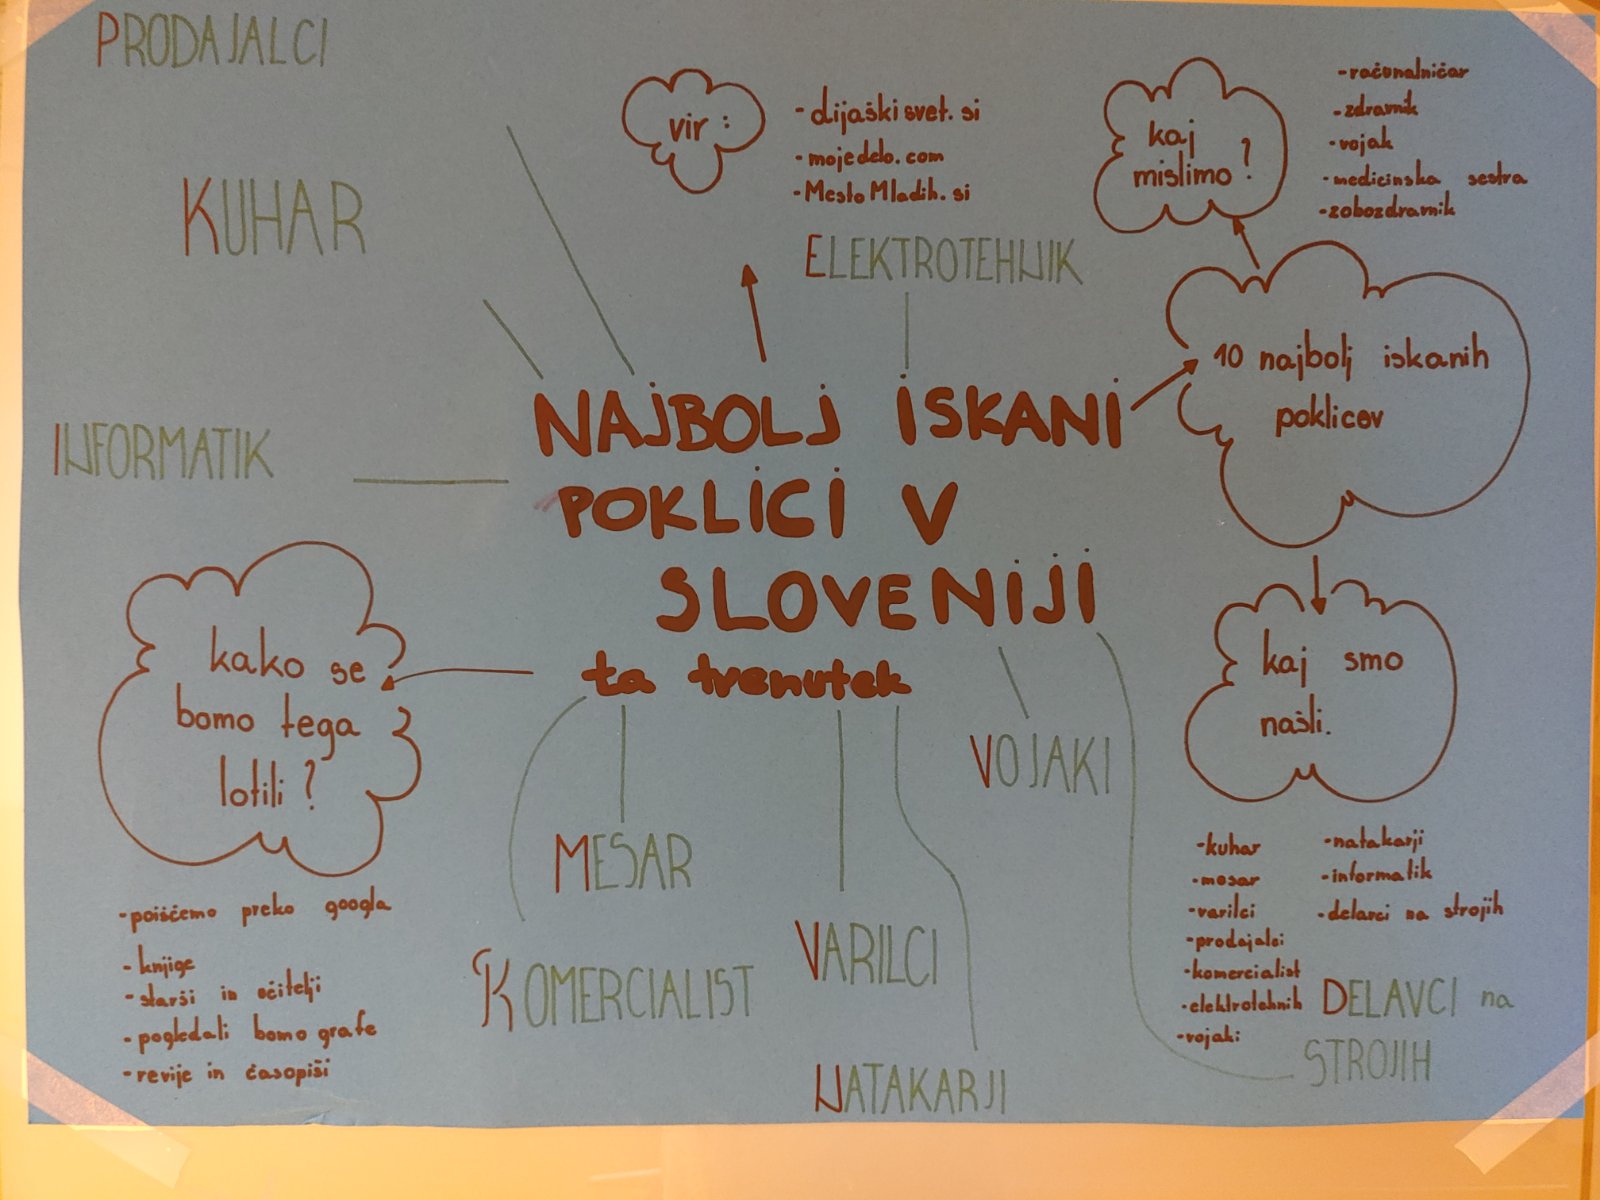 PRODAJALCI
KUHAR
INFORMATIK
vir:
- dijaški svet. si
- mojedelo. com
- Mesto Mladih. si
ELEKTROTEHNIK
kaj
mislimo?
- računalničar
- zdravnik
- vojak
- medicinska sestra
- zobozdravnik
10 najbolj iskanih
poklicov
NAJBOLJ ISKANI
POKLICI V
SLOVENIJI
ta trenutek
kako se
bomo tega
lotili?
- poiščemo preko googla
- knjige
- starši in učitelji
- pogledali bomo grafe
- revije in časopiši
kaj smo
našli.
- kuhar
- mesar
- varilci
- prodajalci
- komercialist
- elektrotehnik
- vojaki
- natakarji
- informatik
- delavci na strojih
VOJAKI
MESAR
VARILCI
KOMERCIALIST
NATAKARJI
DELAVCI na
STROJIH